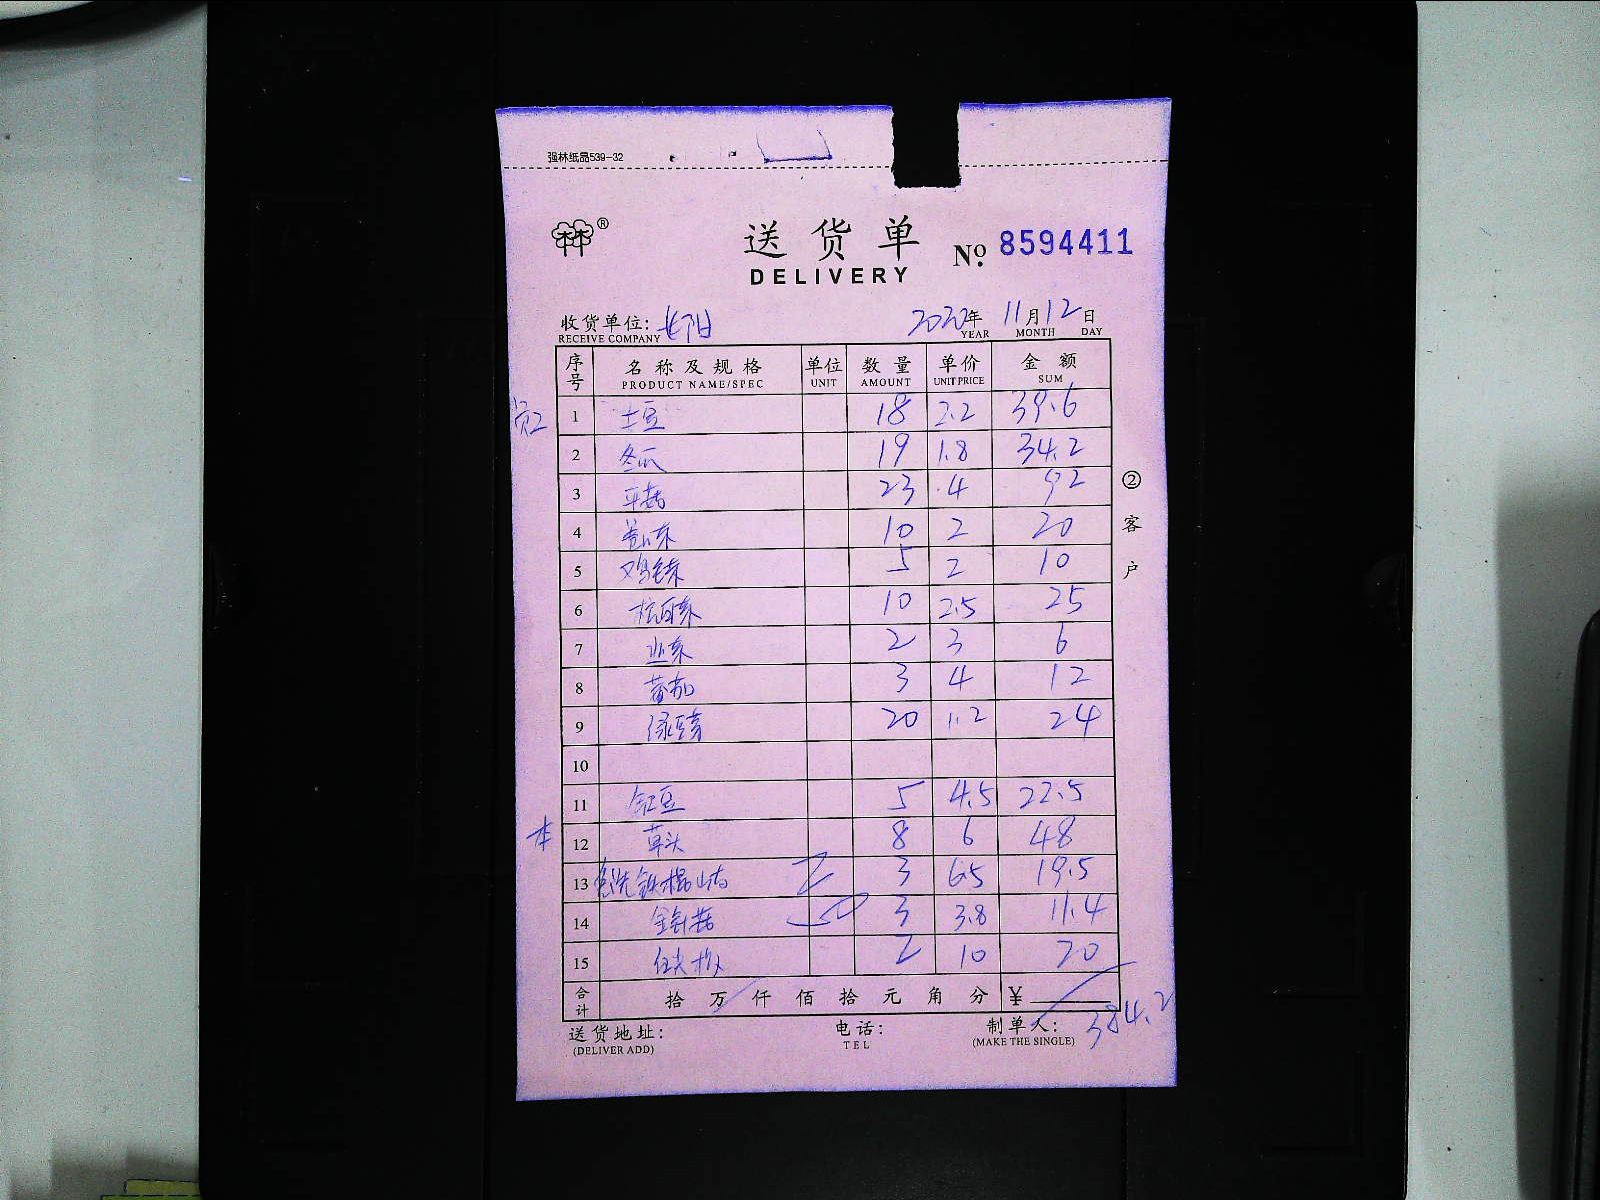 强林纸品539-32
林林®
送货单
DELIVERY
№ 8594411
收货单位: 长阳 2020年 11月12日
RECEIVE COMPANY YEAR MONTH DAY
序号 名称及规格 单位 数量 单价 金额
PRODUCT NAME/SPEC UNIT AMOUNT UNIT PRICE SUM
1 土豆 18 2.2 39.6
2 冬瓜 19 1.8 34.2
3 平菇 23 4 92
4 10 2 20
5 鸡毛菜 5 2 10
6 杭白菜 10 2.5 25
7 韭菜 2 3 6
8 蕃茄 3 4 12
9 绿豆芽 20 1.2 24
10
11 缸豆 5 4.5 22.5
本 12 草头 8 6 48
13 铁棍山药 3 6.5 19.5
14 金针菇 3 3.8 11.4
15 2 10 20
合计 拾 万 仟 佰 拾 元 角 分 ¥ 384.2
送货地址: 电话: 制单人:
(DELIVER ADD) TEL (MAKE THE SINGLE)
②客户